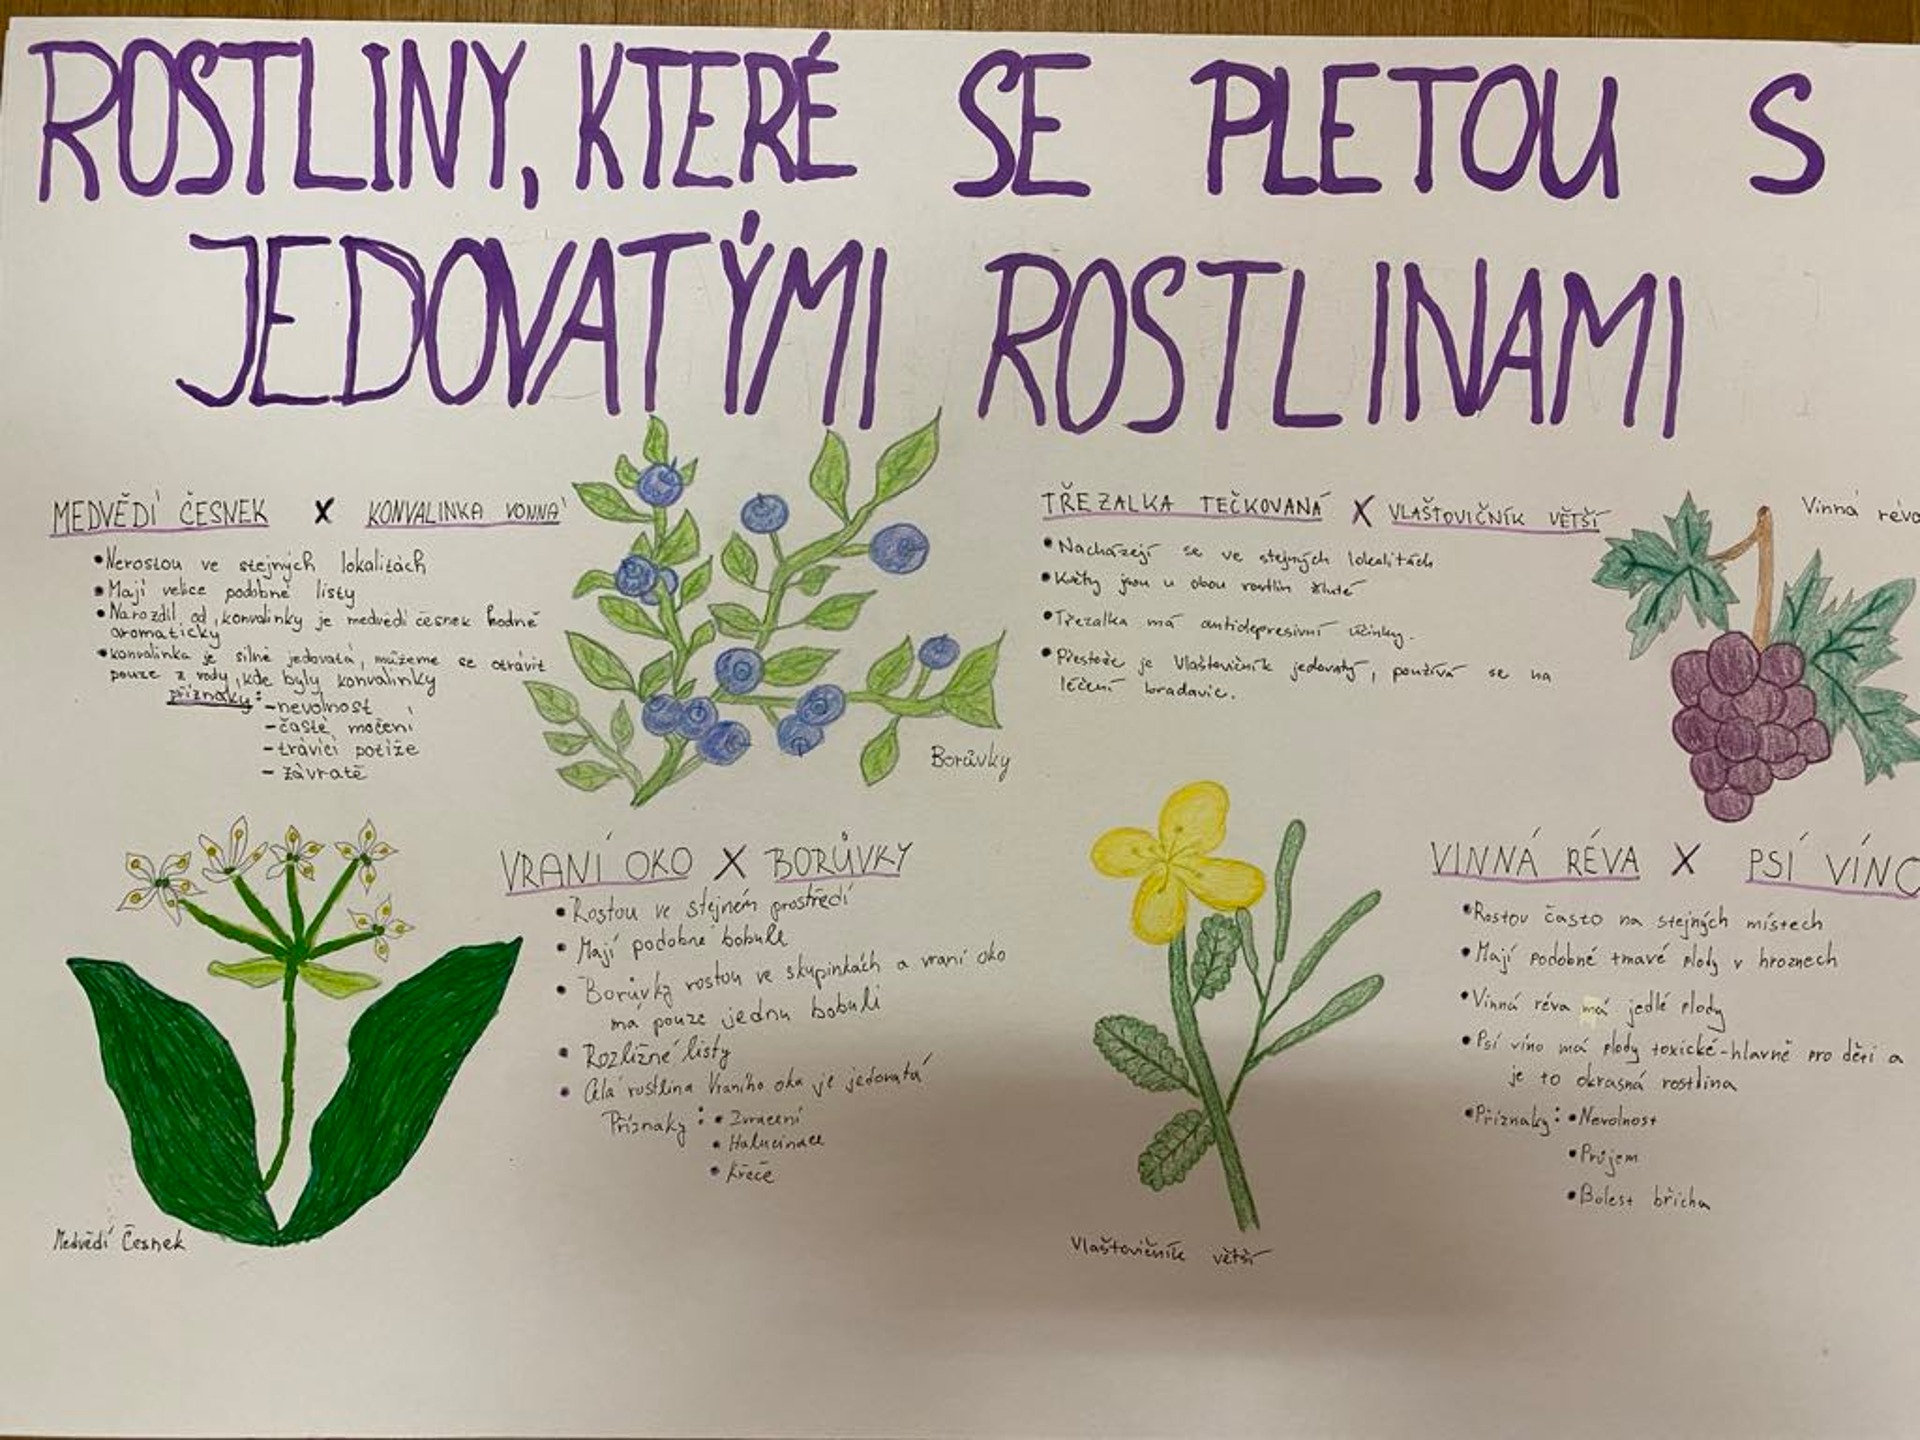 ROSTLINY, KTERÉ SE PLETOU S
JEDOVATÝMI ROSTLINAMI
MEDVĚDÍ ČESNEK X KONVALINKA VONNÁ
•Nerostou ve stejných lokalitách
•Mají velice podobné listy
•Narozdíl od konvalinky je medvědí česnek hodně
aromatický
•konvalinka je silně jedovatá, můžeme se otrávit
pouze z vody, kde byly konvalinky
příznaky: -nevolnost
-časté močení
-trávící potíže
- závratě
Medvědí Česnek
Borůvky
VRANÍ OKO X BORŮVKY
•Rostou ve stejném prostředí
•Mají podobné bobule
•Borůvky rostou ve skupinkách a vraní oko
má pouze jednu bobuli
•Rozližné listy
•Celá rostlina Vraního oka je jedovatá
Příznaky: •Zvracení
•Halucinace
•Křeče
TŘEZALKA TEČKOVANÁ X VLAŠTOVIČNÍK VĚTŠÍ
•Nacházejí se ve stejných lokalitách
•Květy jsou u obou rostlin žluté
•Třezalka má antidepresivní účinky.
•Přestože je Vlaštovičník jedovatý, používá se na
léčení bradavic.
Vlaštovičník větší
Vinná réva
VINNÁ RÉVA X PSÍ VÍNO
•Rostou často na stejných místech
•Mají podobné tmavé plody v hroznech
•Vinná réva má jedlé plody
•Psí víno má plody toxické-hlavně pro děti a
je to okrasná rostlina
•Příznaky: •Nevolnost
•Průjem
•Bolest břicha